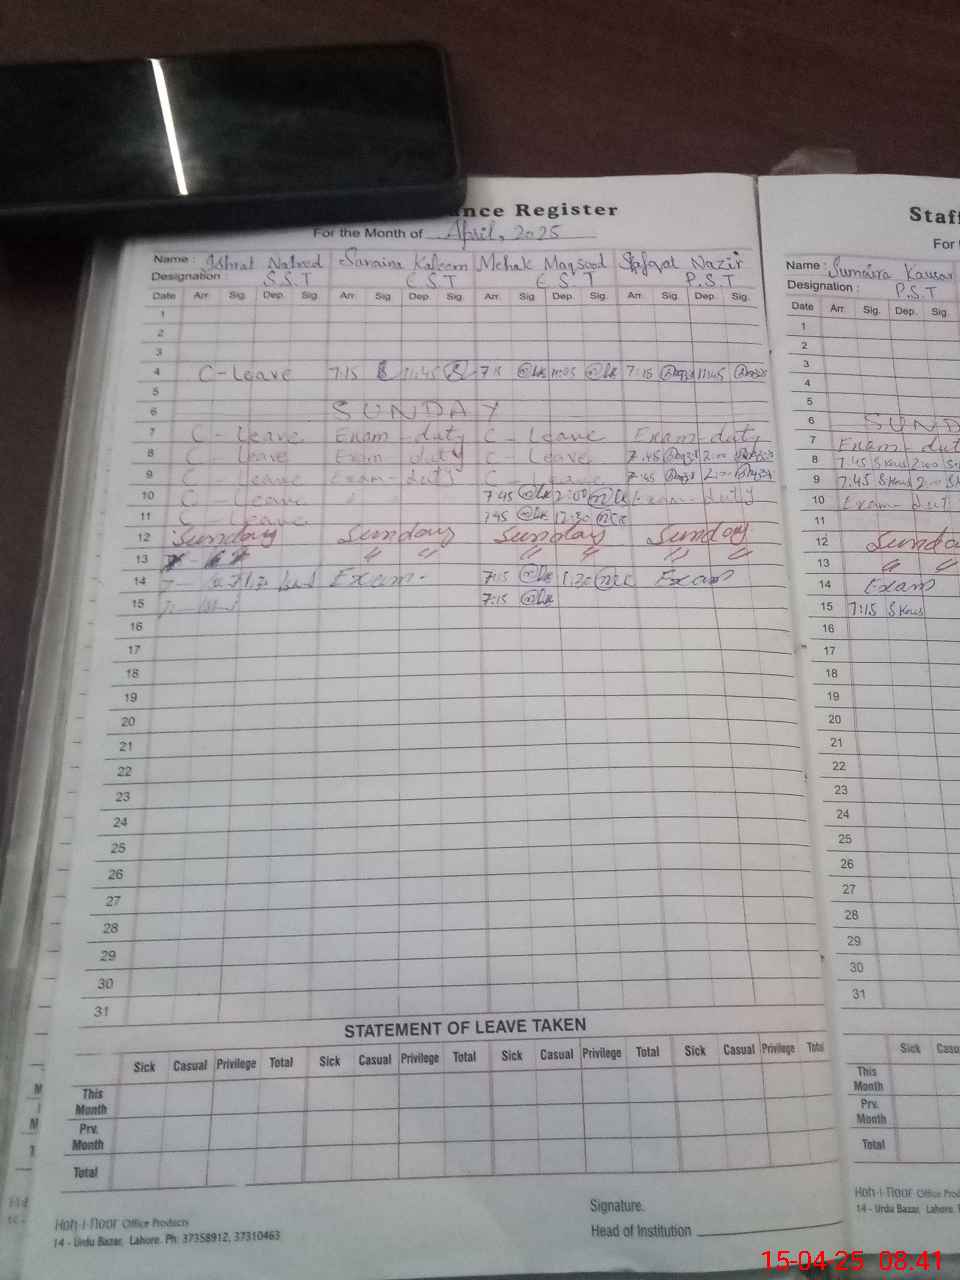 nce Register
For the Month of April, 2025
Name : Ishrat Naheed Sumaira Kaleem Mehak Maqsood Shafqat Nazir
Designation : S.S.T E S T E S T P.S.T
Date Arr. Sig. Dep. Sig. Arr. Sig. Dep. Sig. Arr. Sig Dep. Sig. Arr. Sig. Dep. Sig.
1
2
3
4 C-Leave 7:15 11:45 7:15 11:05 7:15 11:45
5
6 SUNDAY
7 C-Leave Exam-duty C-Leave Exam-duty
8 C-Leave Exam duty C-Leave 7.45 2:00
9 C-Leave Exam-duty C-Leave 7:45 2:00
10 C-Leave 7 45 2:00 Exam-duty
11 C-Leave 7 45 12:30
12 Sunday Sunday Sunday Sunday
13 " " " " " "
14 Exam. 7:15 1:30 Exam
15 7:15
16
17
18
19
20
21
22
23
24
25
26
27
28
29
30
31
STATEMENT OF LEAVE TAKEN
Sick Casual Privilege Total Sick Casual Privilege Total Sick Casual Privilege Total Sick Casual Privilege Total
This Month
Prv. Month
Total
Signature.
Head of Institution
Koh-i-Noor Office Products
14 - Urdu Bazar, Lahore. Ph: 37358912, 37310463
Staf
For
Name : Sumaira Kausar
Designation : P.S.T
Date Arr. Sig. Dep. Sig.
1
2
3
4
5
6 SUND
7 Exam dut
8 7:45 S Kous 2:00
9 7:45 S Kous 2:00
10 Exam- dut
11
12 Sunda
13 " "
14 Exam
15 7:15 S Kous
16
17
18
19
20
21
22
23
24
25
26
27
28
29
30
31
Sick Casu
This Month
Prv. Month
Total
Koh-i-Noor Office Prod
14 - Urdu Bazar, Lahore.
15-04-25 08.41